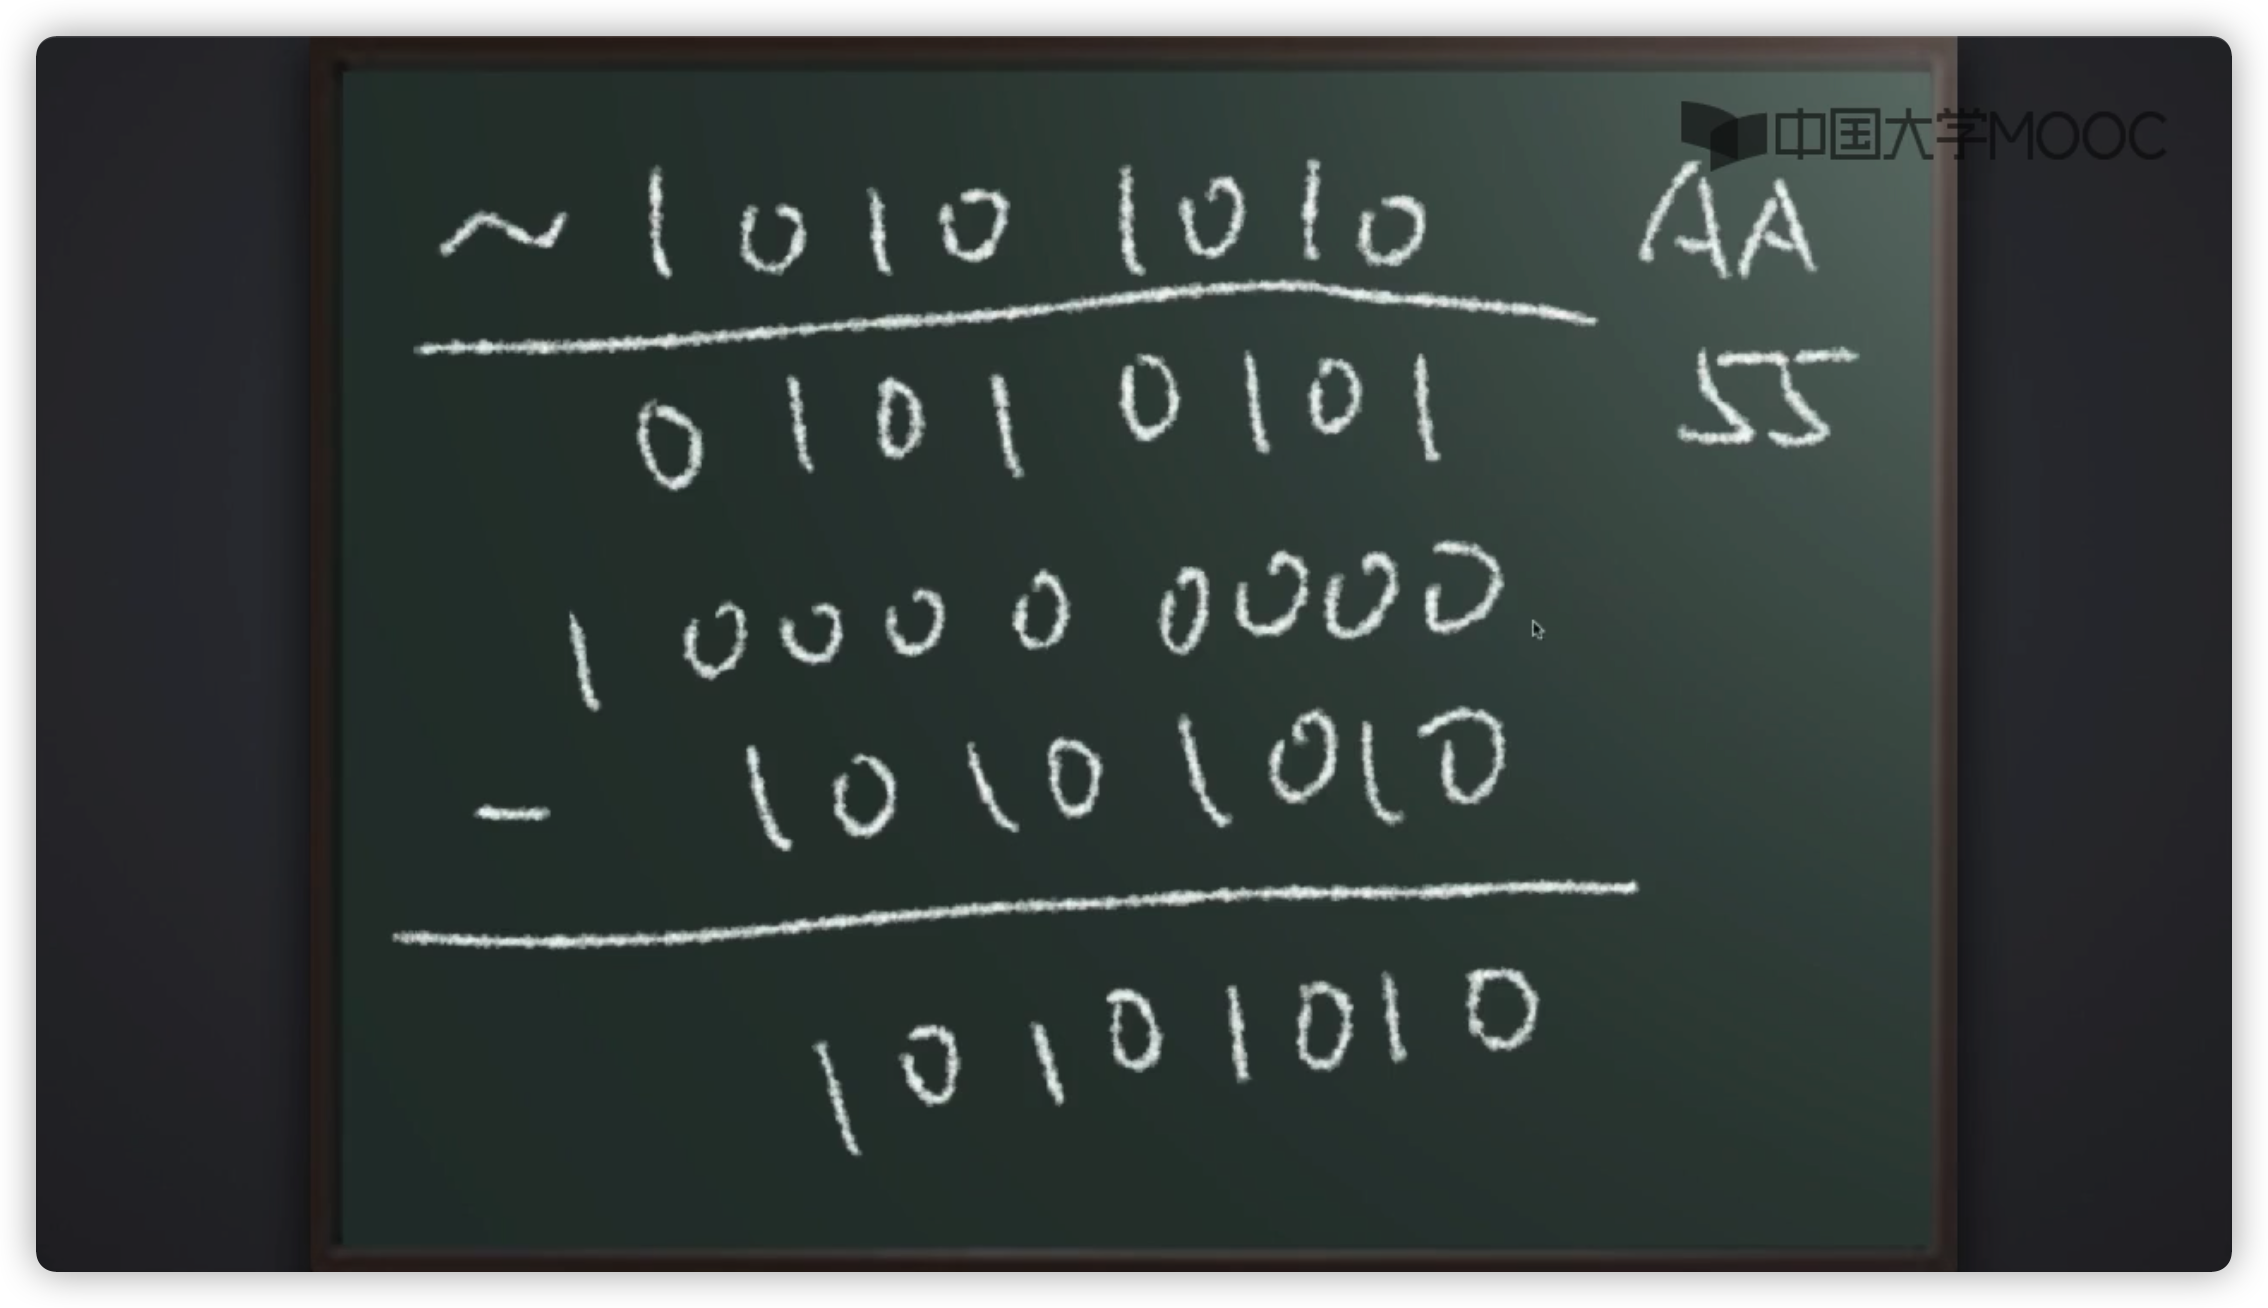 中国大学MOOC
~ 1 0 1 0 1 0 1 0 AA
0 1 0 1 0 1 0 1 55
1 0 0 0 0 0 0 0 0
- 1 0 1 0 1 0 1 0
1 0 1 0 1 0 1 0